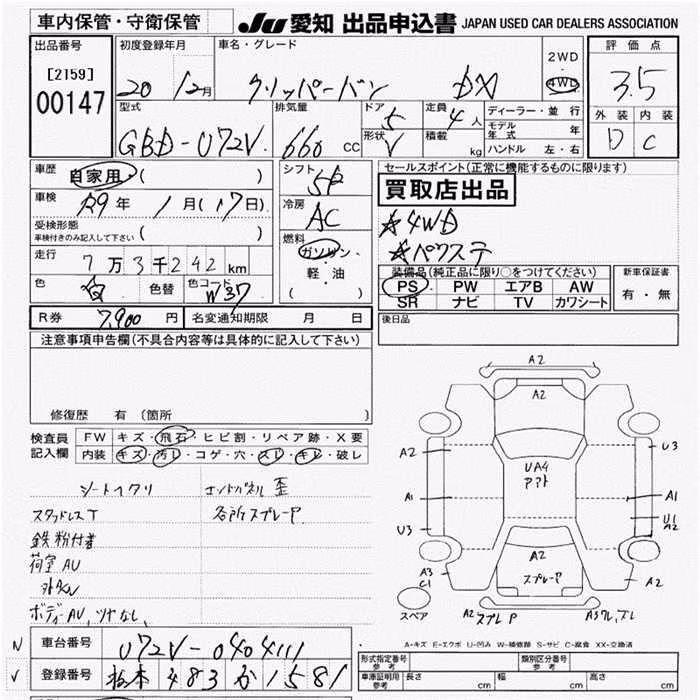 車内保管・守衛保管
JU 愛知 出品申込書 JAPAN USED CAR DEALERS ASSOCIATION
出品番号
[2159]
00147
初度登録年月
20 12月
車名・グレード
クリッパーバン DX
2WD
4WD
評価点
3.5
外装 内装
D C
型式
GBD-U72V
排気量
660 CC
ドア 5
形状 V
定員 4 人
積載 kg
ディーラー・並行
モデル年式 年
ハンドル 左・右
車歴
自家用 ( )
車検
R9年 1月(17日)
受検形態
車検付きのみ記入して下さい ( )
走行
7万3千242km
色 白 色替 色コード W37
シフト
5F
冷房
AC
燃料
ガソリン・
軽・油
( )
セールスポイント(正常に機能するものに限ります)
買取店出品
☆4WD
☆パワステ
装備品(純正品に限り○をつけてください)
PS PW エアB AW
SR ナビ TV カワシート
新車保証書
有・無
R券 7,900円 名変通知期限 月 日
後日品
注意事項申告欄(不具合内容等は具体的に記入して下さい)
修復歴 有 (箇所 )
検査員記入欄
FW キズ・飛石・ヒビ割・リペア跡・X要
内装 キズ・汚レ・コゲ・穴・スレ・キレ・破レ
シートヘタリ
スタッドレスT
鉄粉付着
荷室AU
ボディーAU,ツヤなし,
エンドパネル歪
各所スプレーP
A2
A2
A2
U3
A1
A1
UA4
アアト
U3
U1
A2
A2
スプレーP
A3
C1
A2
スペア
A2 スプレP
A・キズ E・エクボ U・凹み W・補修跡 S・サビ C・腐食 XX・交換済
N 車台番号 U72V-0404111
V 登録番号 松本 483 か 1581
形式指定番号 参考
類別区分番号 参考
車庫証明 参考 長さ cm 幅 cm 高さ cm